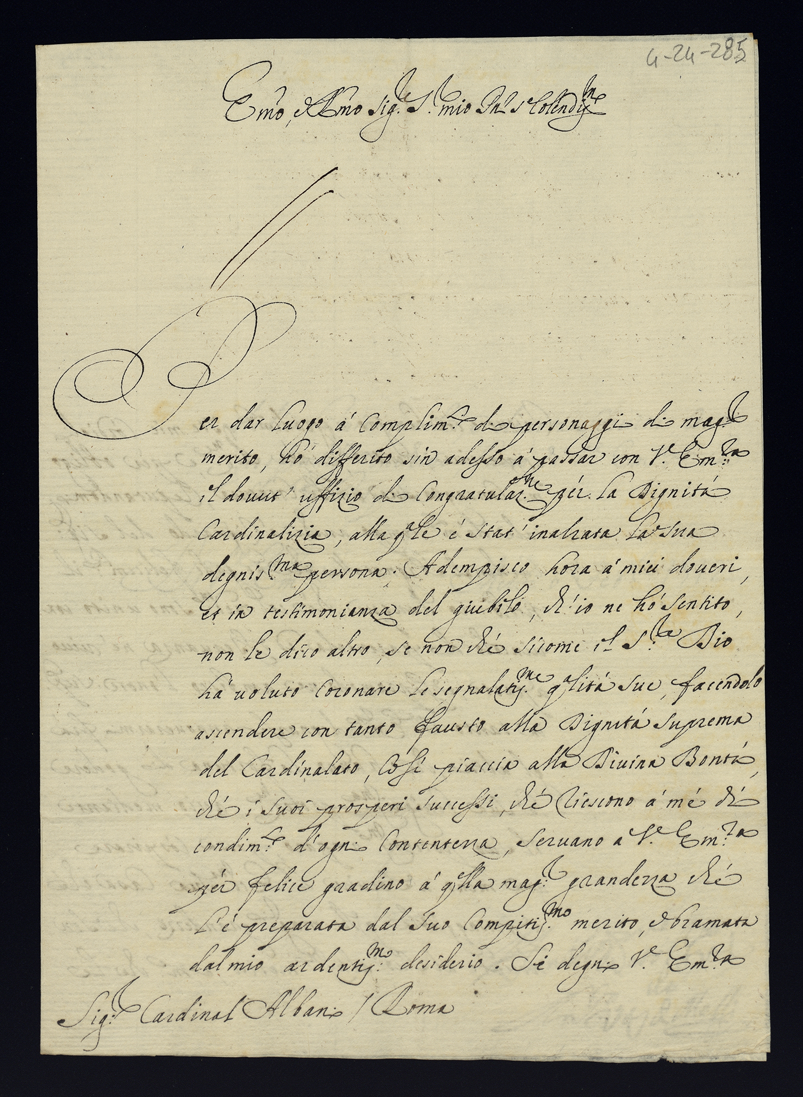 4-24-285
Em̃o, e R̃mo Sig.r S.r mio Pñe Colendis.mo
Per dar luogo á Complim.ti di personaggi di mag.r
merito, hó differito sin adesso á passar con V.ra Em.za
il douut' uffizio di Congratulaz.ne pér la Dignitá
Cardinalizia, alla qle é stat' inalzata la sua
degnis.ma persona. Adempisco hora á miei doveri,
et in testimonianza del giubilo, ch'io ne hó sentito,
non le dico altro, se non ché sicome il S.r Dio
há voluto coronare le segnalatis.me qlitá sue, facendolo
ascendere con tanto fausto alla Dignitá suprema
del Cardinalato, Cosi piaccia alla Divina Bontá,
ché i suoi prosperi successi, ché riescono á mé di
condim.to d'ogni Contentezza, seruano a V.ra Em.za
pér felice gradino á qlla mag.r grandezza ché
l'é preparata dal suo Compitis.mo merito, e bramata
dal mio ardentis.mo desiderio. Si degni V.ra Em.za
Sig.r Cardinal Albani / Roma